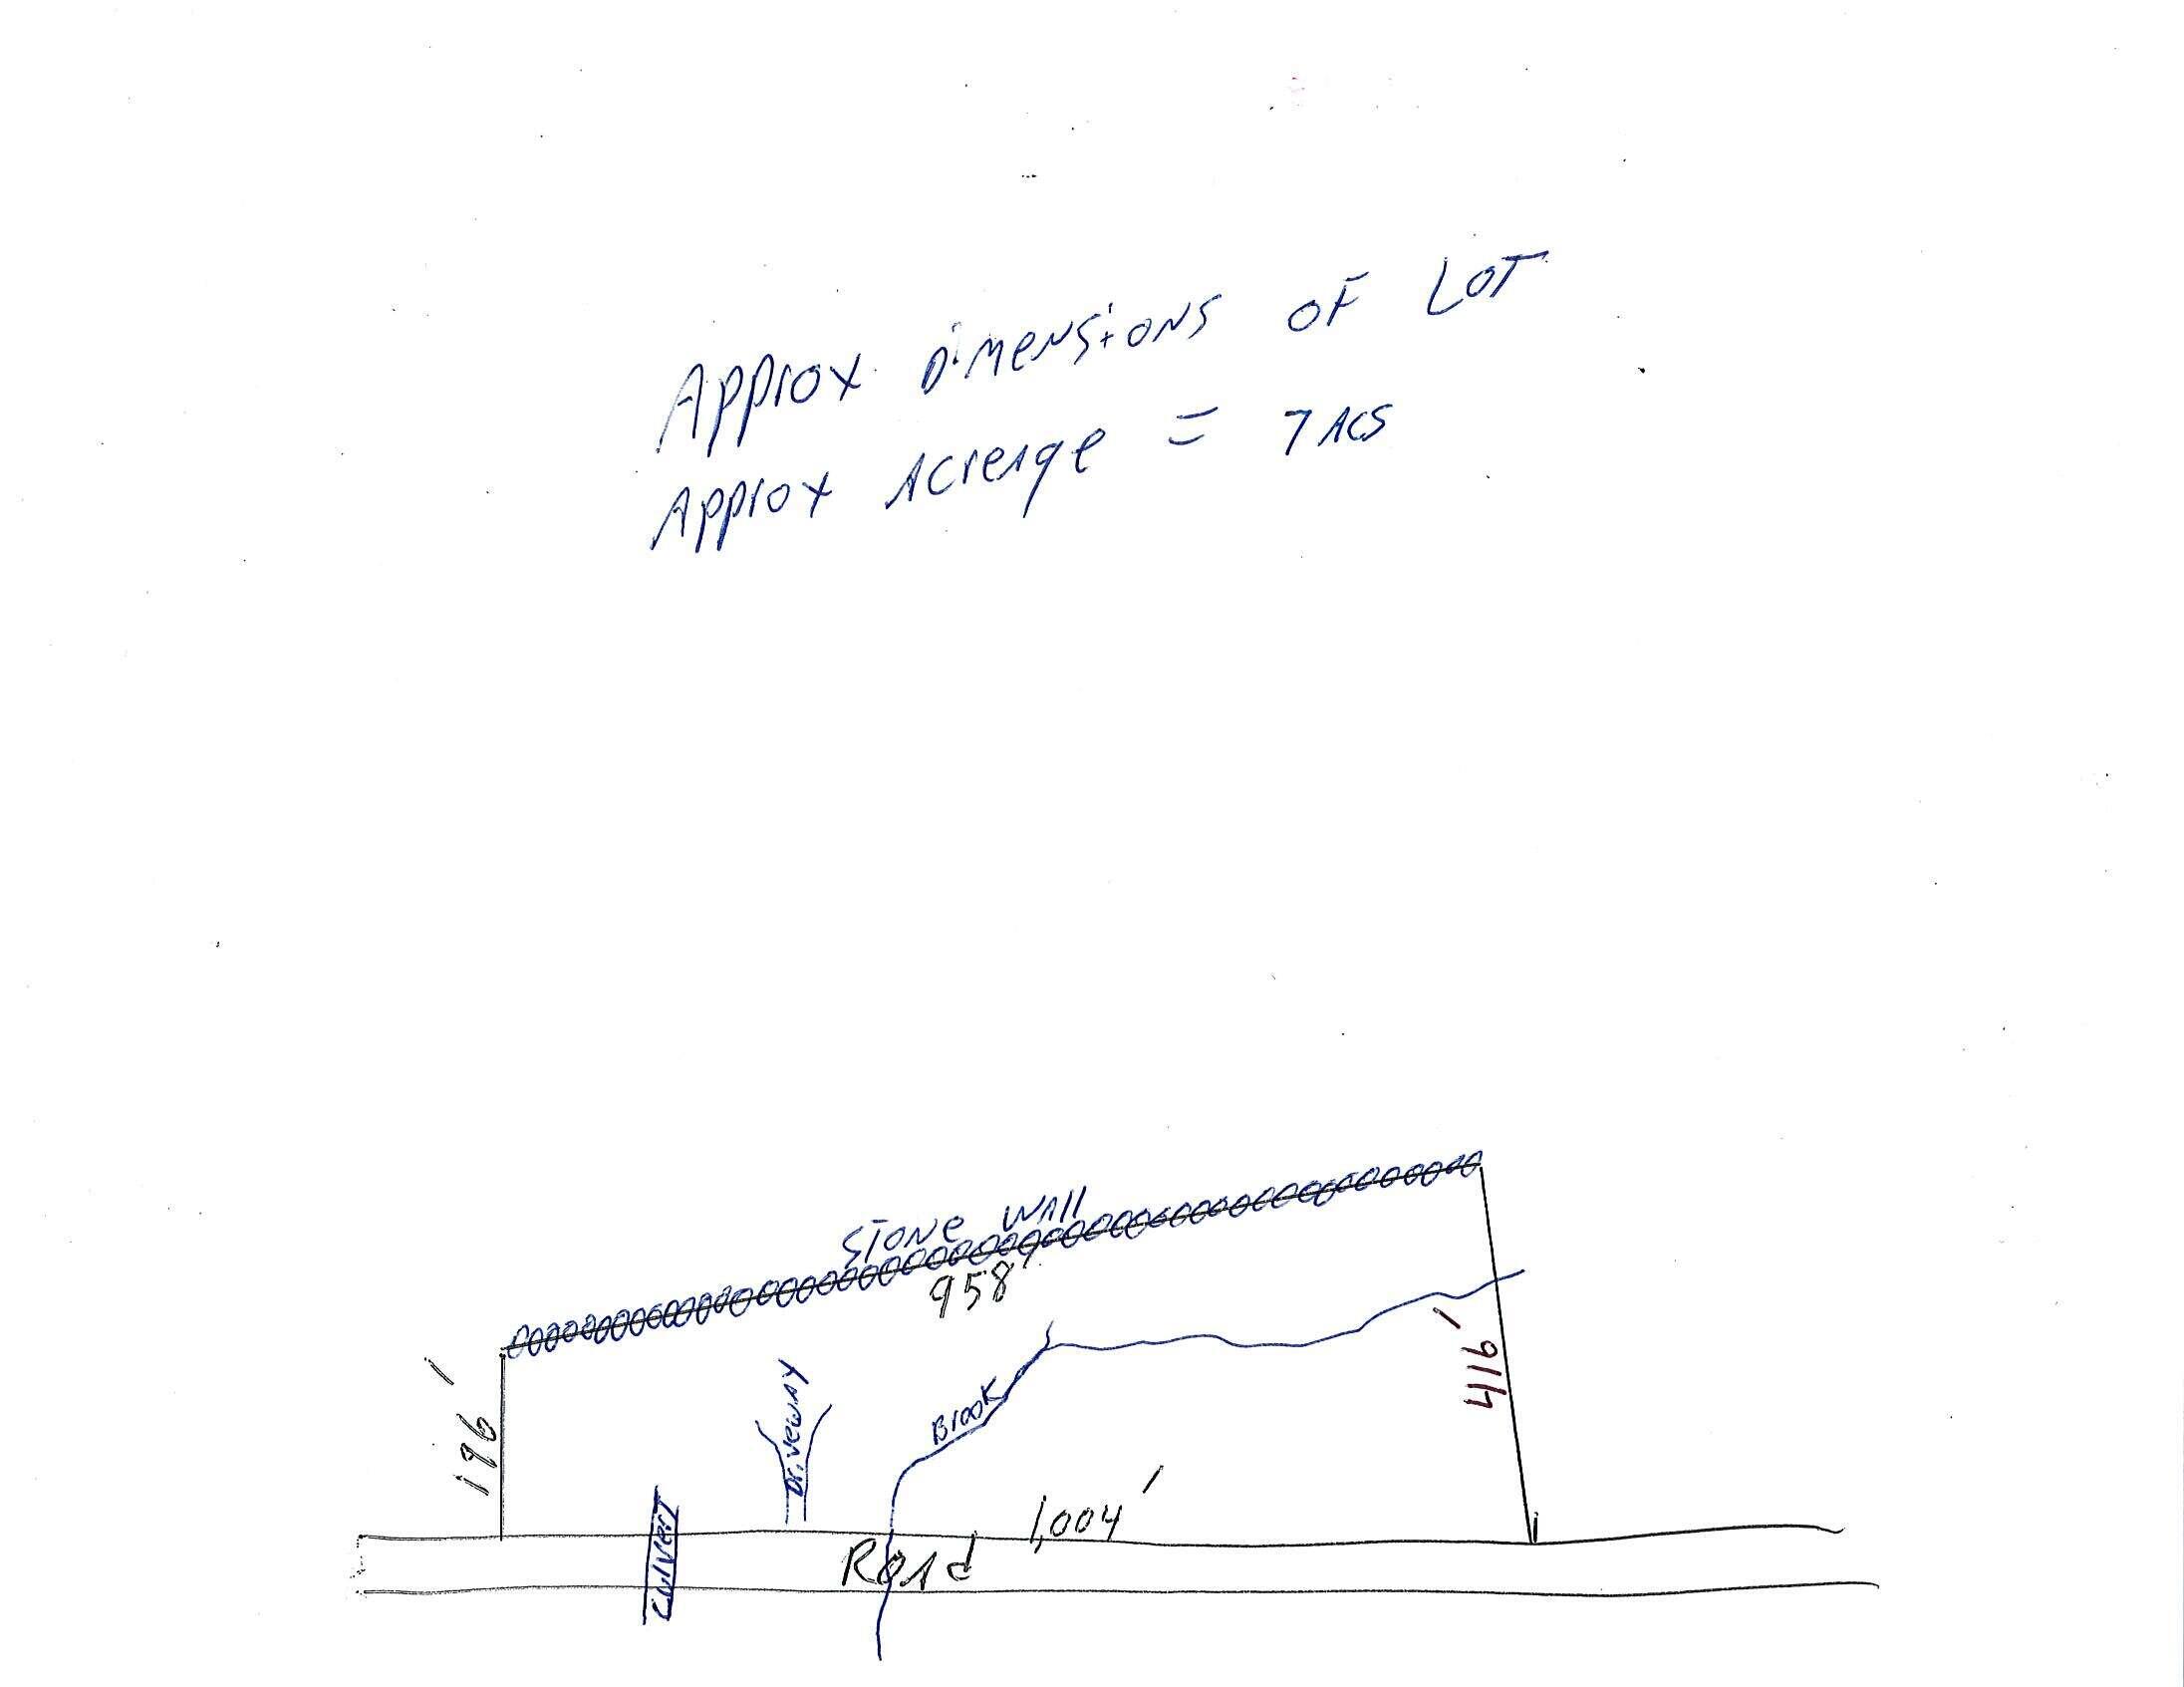 Approx. Dimensions OF LOT
Approx Acreage = 7 ACS
STONE WALL
958'
196'
Driveway
Brook
416'
1,004'
Culvert
Road